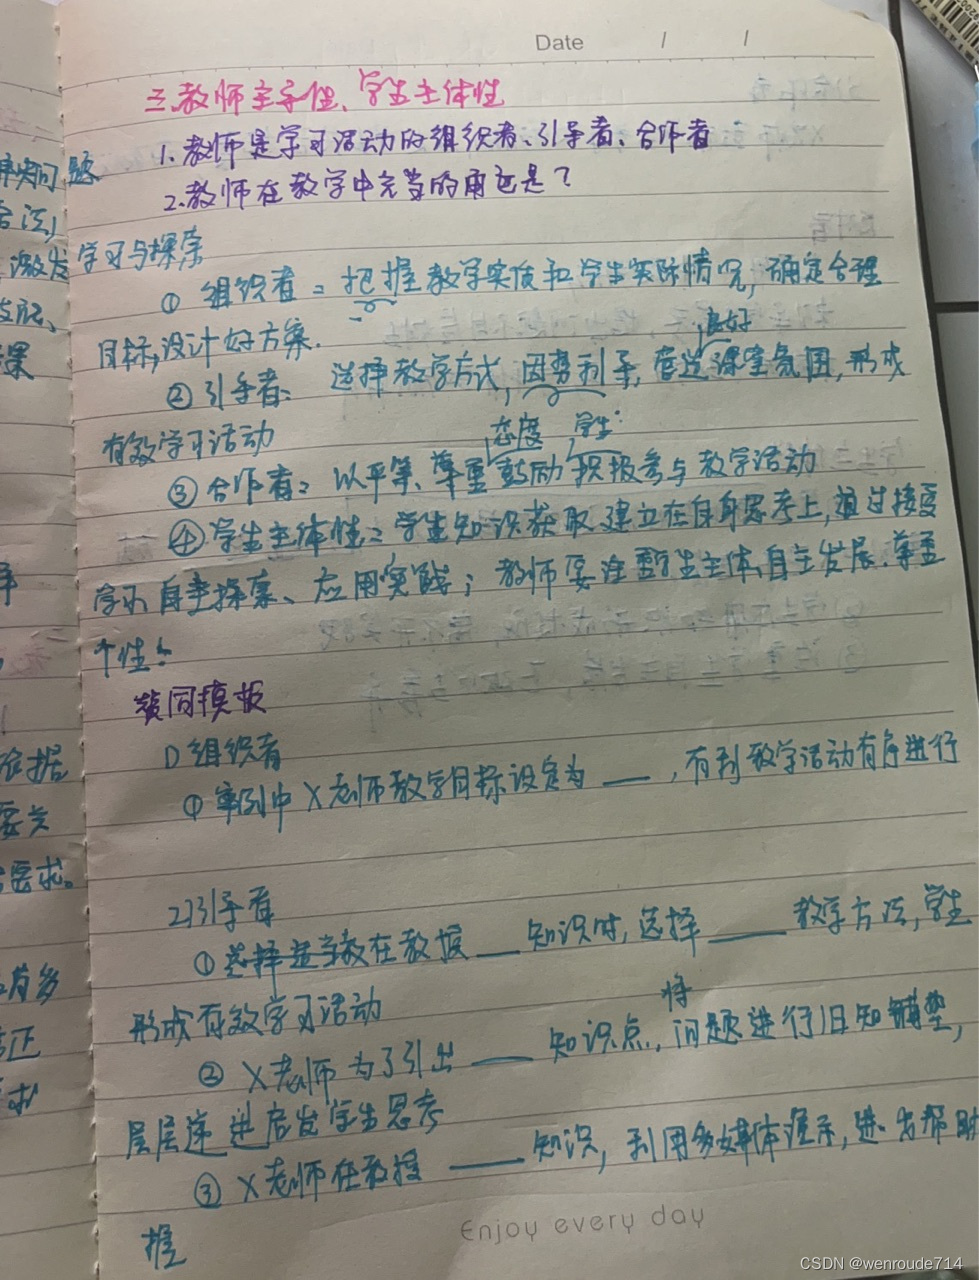 Date / /
三.教师主导性、学生主体性
1.教师是学习活动的组织者、引导者、合作者
2.教师在教学中充当的角色是?
学习与探索
① 组织者：把握教学实质和学生实际情况,确定合理
目标,设计好方案.
良好
② 引导者: 选择教学方式,因势利导,营造课堂氛围,形成
有效学习活动
态度 学生
③ 合作者: 以平等、尊重鼓励积极参与教学活动
④ 学生主体性: 学生知识获取建立在自身思考上,通过接受
学习、自主探索、应用实践; 教师要注重学生主体、自主发展、尊重
个性!
赞同模板
1)组织者
① 案例中X老师教学目标设定为___,有利教学活动有序进行
2)引导者
① 在教授___知识时,选择___教学方法,学生
形成有效学习活动
将
② X老师为了引出___知识点,问题进行旧知铺垫,
层层递进启发学生思考
③ X老师在教授___知识,利用多媒体演示,进 帮助
握
问题
合法,
激发
课
依据
要关
要求。
有多
正
求
Enjoy every day
CSDN @wenroude714